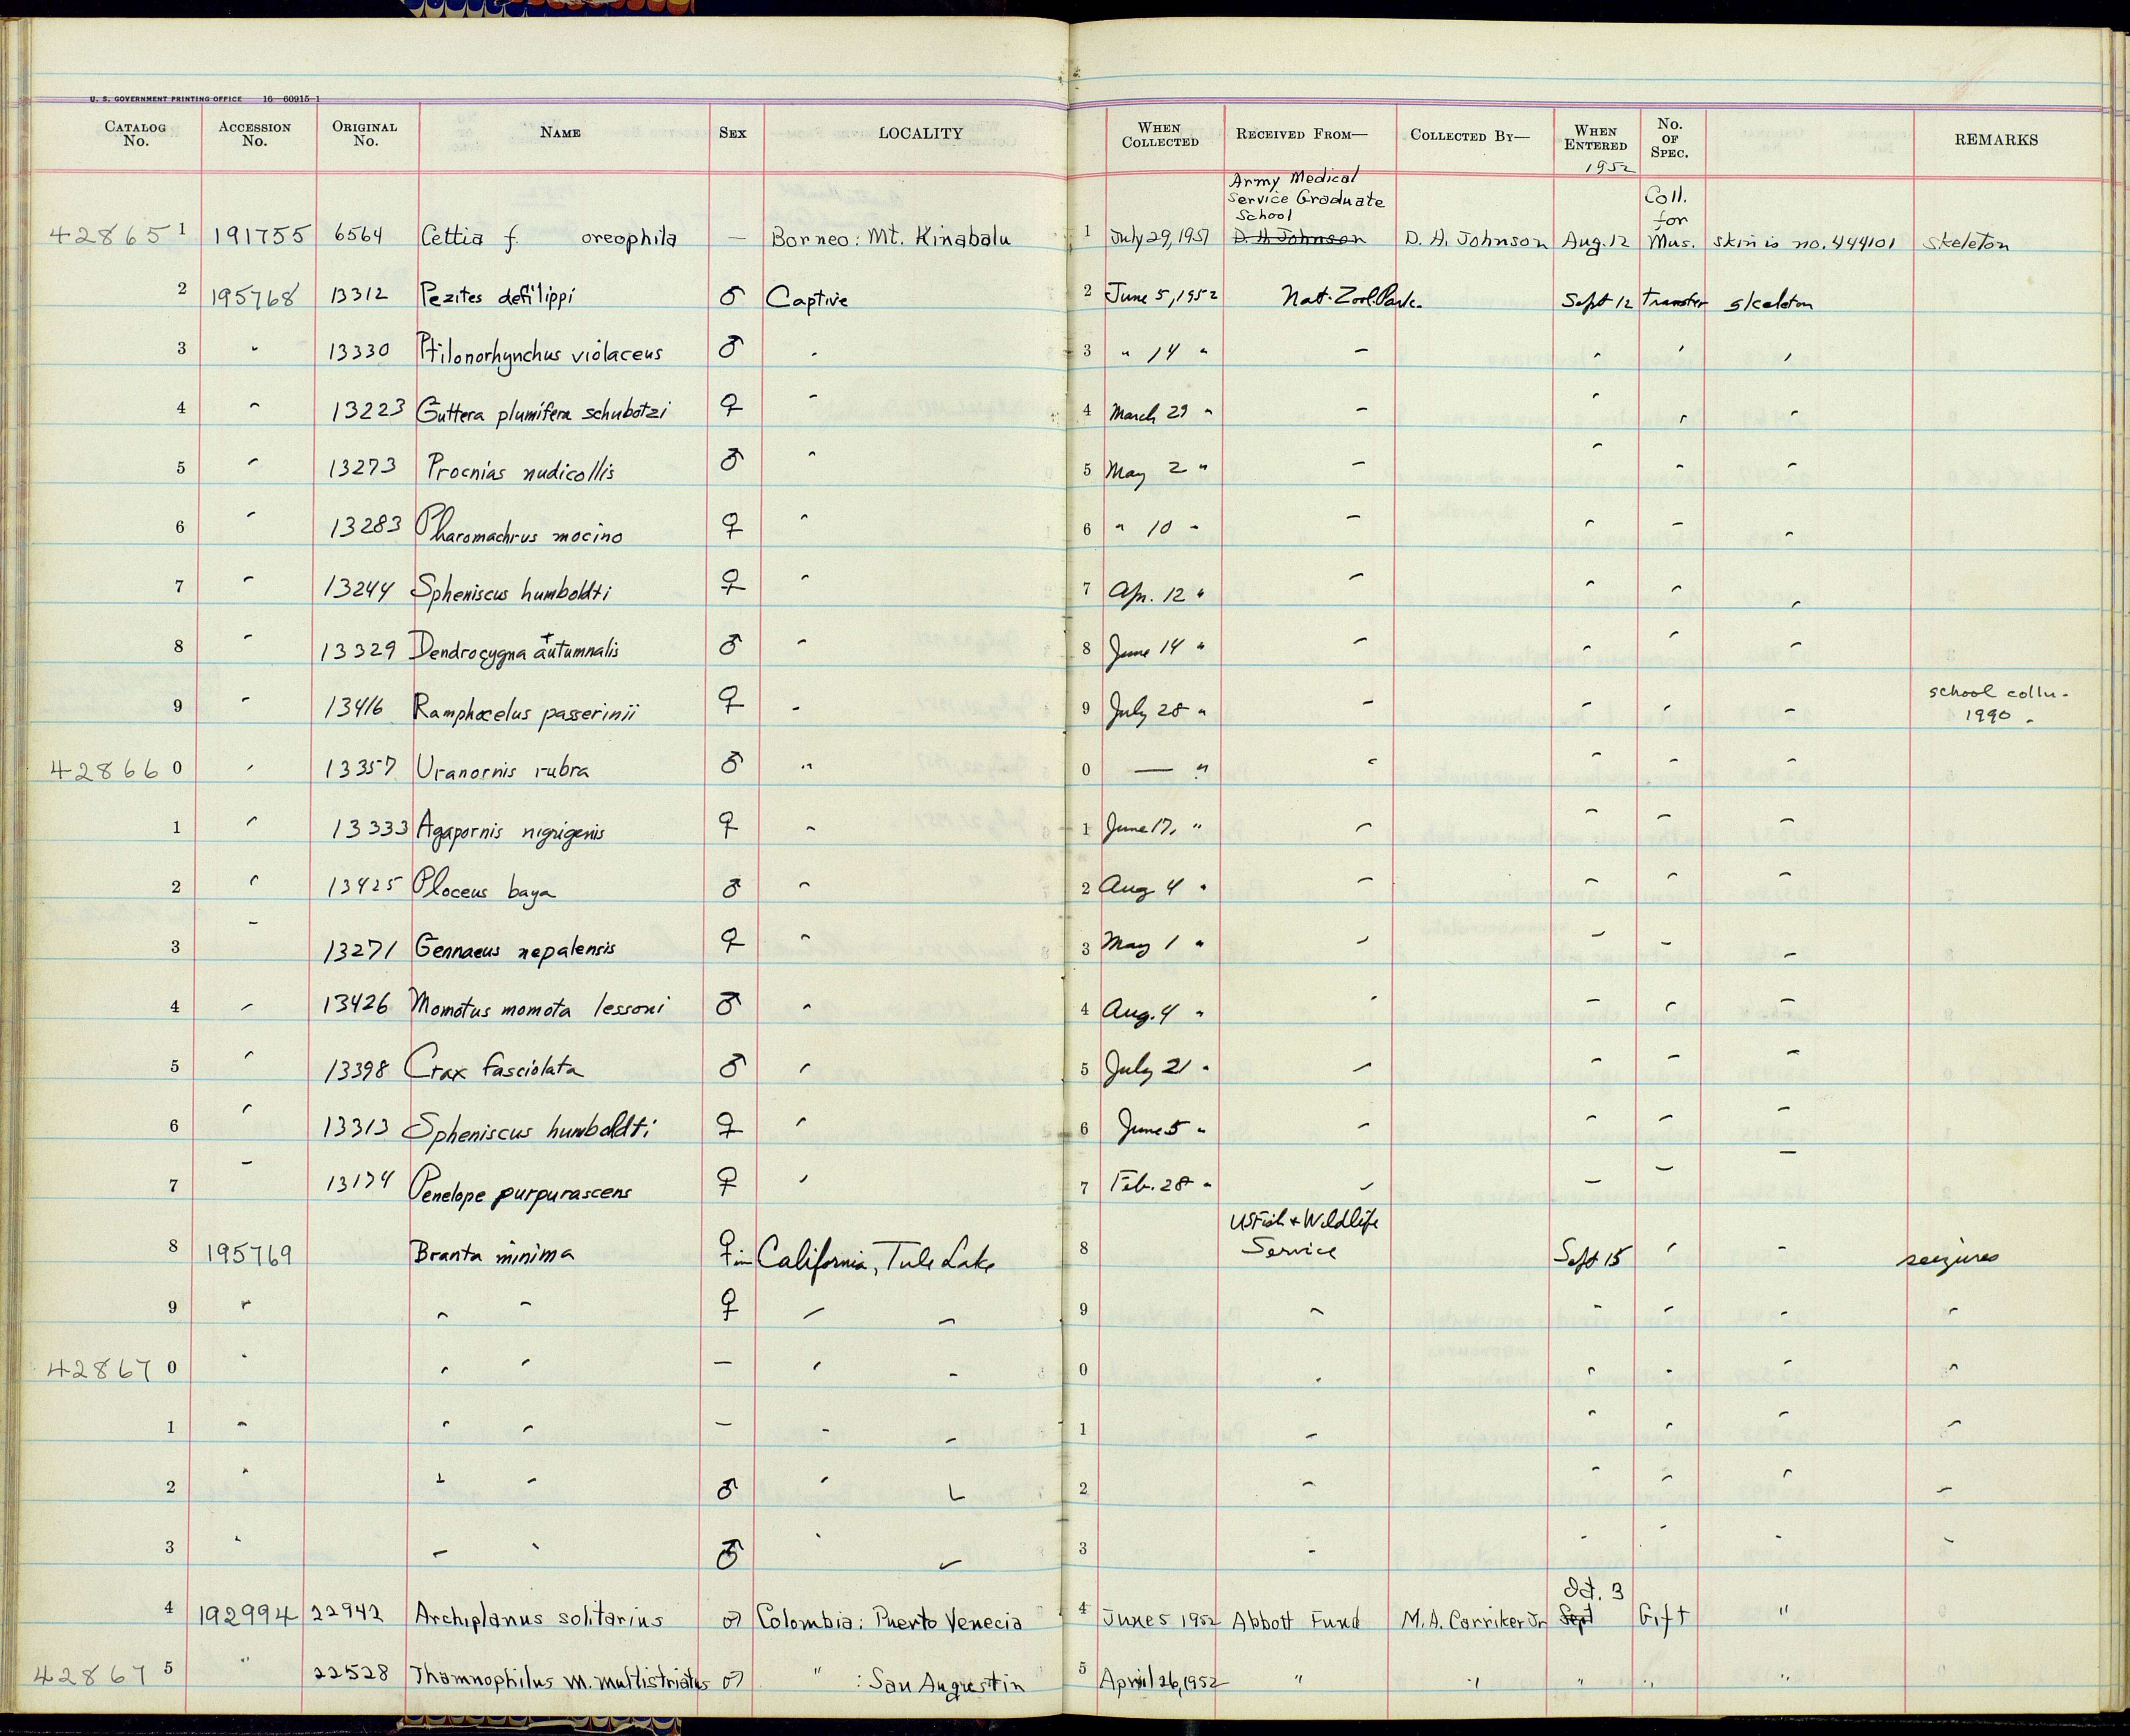 U. S. GOVERNMENT PRINTING OFFICE 16—60915-1
CATALOG No. ACCESSION No. ORIGINAL No. NAME SEX LOCALITY WHEN COLLECTED RECEIVED FROM— COLLECTED BY— WHEN ENTERED No. OF SPEC. REMARKS
1952
Army Medical Service Graduate School
Coll. for
42865 1 191755 6564 Cettia f. oreophila — Borneo: Mt. Kinabalu 1 July 29, 1951 D. H. Johnson D. H. Johnson Aug. 12 Mus. skin is no. 444101 skeleton
2 195768 13312 Pezites defilippi ♂ Captive 2 June 5, 1952 Nat. Zool. Park. Sept 12 Transfer skeleton
3 " 13330 Ptilonorhynchus violaceus ♂ " 3 " 14 " " " " "
4 " 13223 Guttera plumifera schubotzi ♀ " 4 March 29 " " " " "
5 " 13273 Procnias nudicollis ♂ " 5 May 2 " " " " "
6 " 13283 Pharomachrus mocino ♀ " 6 " 10 " " " " "
7 " 13244 Spheniscus humboldti ♀ " 7 Apr. 12 " " " " "
8 " 13329 Dendrocygna autumnalis ♂ " 8 June 14 " " " " "
9 " 13416 Ramphocelus passerinii ♀ " 9 July 28 " " " " " school colln. 1990.
42866 0 " 13357 Uranornis rubra ♂ " 0 — " " " " "
1 " 13333 Agapornis nigrigenis ♀ " 1 June 17, " " " " "
2 " 13425 Ploceus baya ♂ " 2 Aug 4 " " " " "
3 " 13271 Gennaeus nepalensis ♀ " 3 May 1 " " " " "
4 " 13426 Momotus momota lessoni ♂ " 4 Aug. 4 " " " " "
5 " 13398 Crax fasciolata ♂ " 5 July 21 " " " " "
6 " 13313 Spheniscus humboldti ♀ " 6 June 5 " " " " "
7 " 13174 Penelope purpurascens ♀ " 7 Feb. 28 " " " " "
8 195769 Branta minima ♀ im California, Tule Lake 8 US Fish + Wildlife Service Sept 15 " " seizures
9 " " " ♀ " " 9 " " " " "
42867 0 " " " — " " 0 " " " " "
1 " " " — " " 1 " " " " "
2 " " " ♂ " " 2 " " " " "
3 " " " ♂ " " 3 " " " " "
Oct. 3
4 192994 22942 Archiplanus solitarius ♂ Colombia: Puerto Venecia 4 June 5 1952 Abbott Fund M. A. Carriker Jr Sept Gift "
42867 5 " 22528 Thamnophilus m. multistriatus ♂ " : San Augustin 5 April 26, 1952 " " " " "